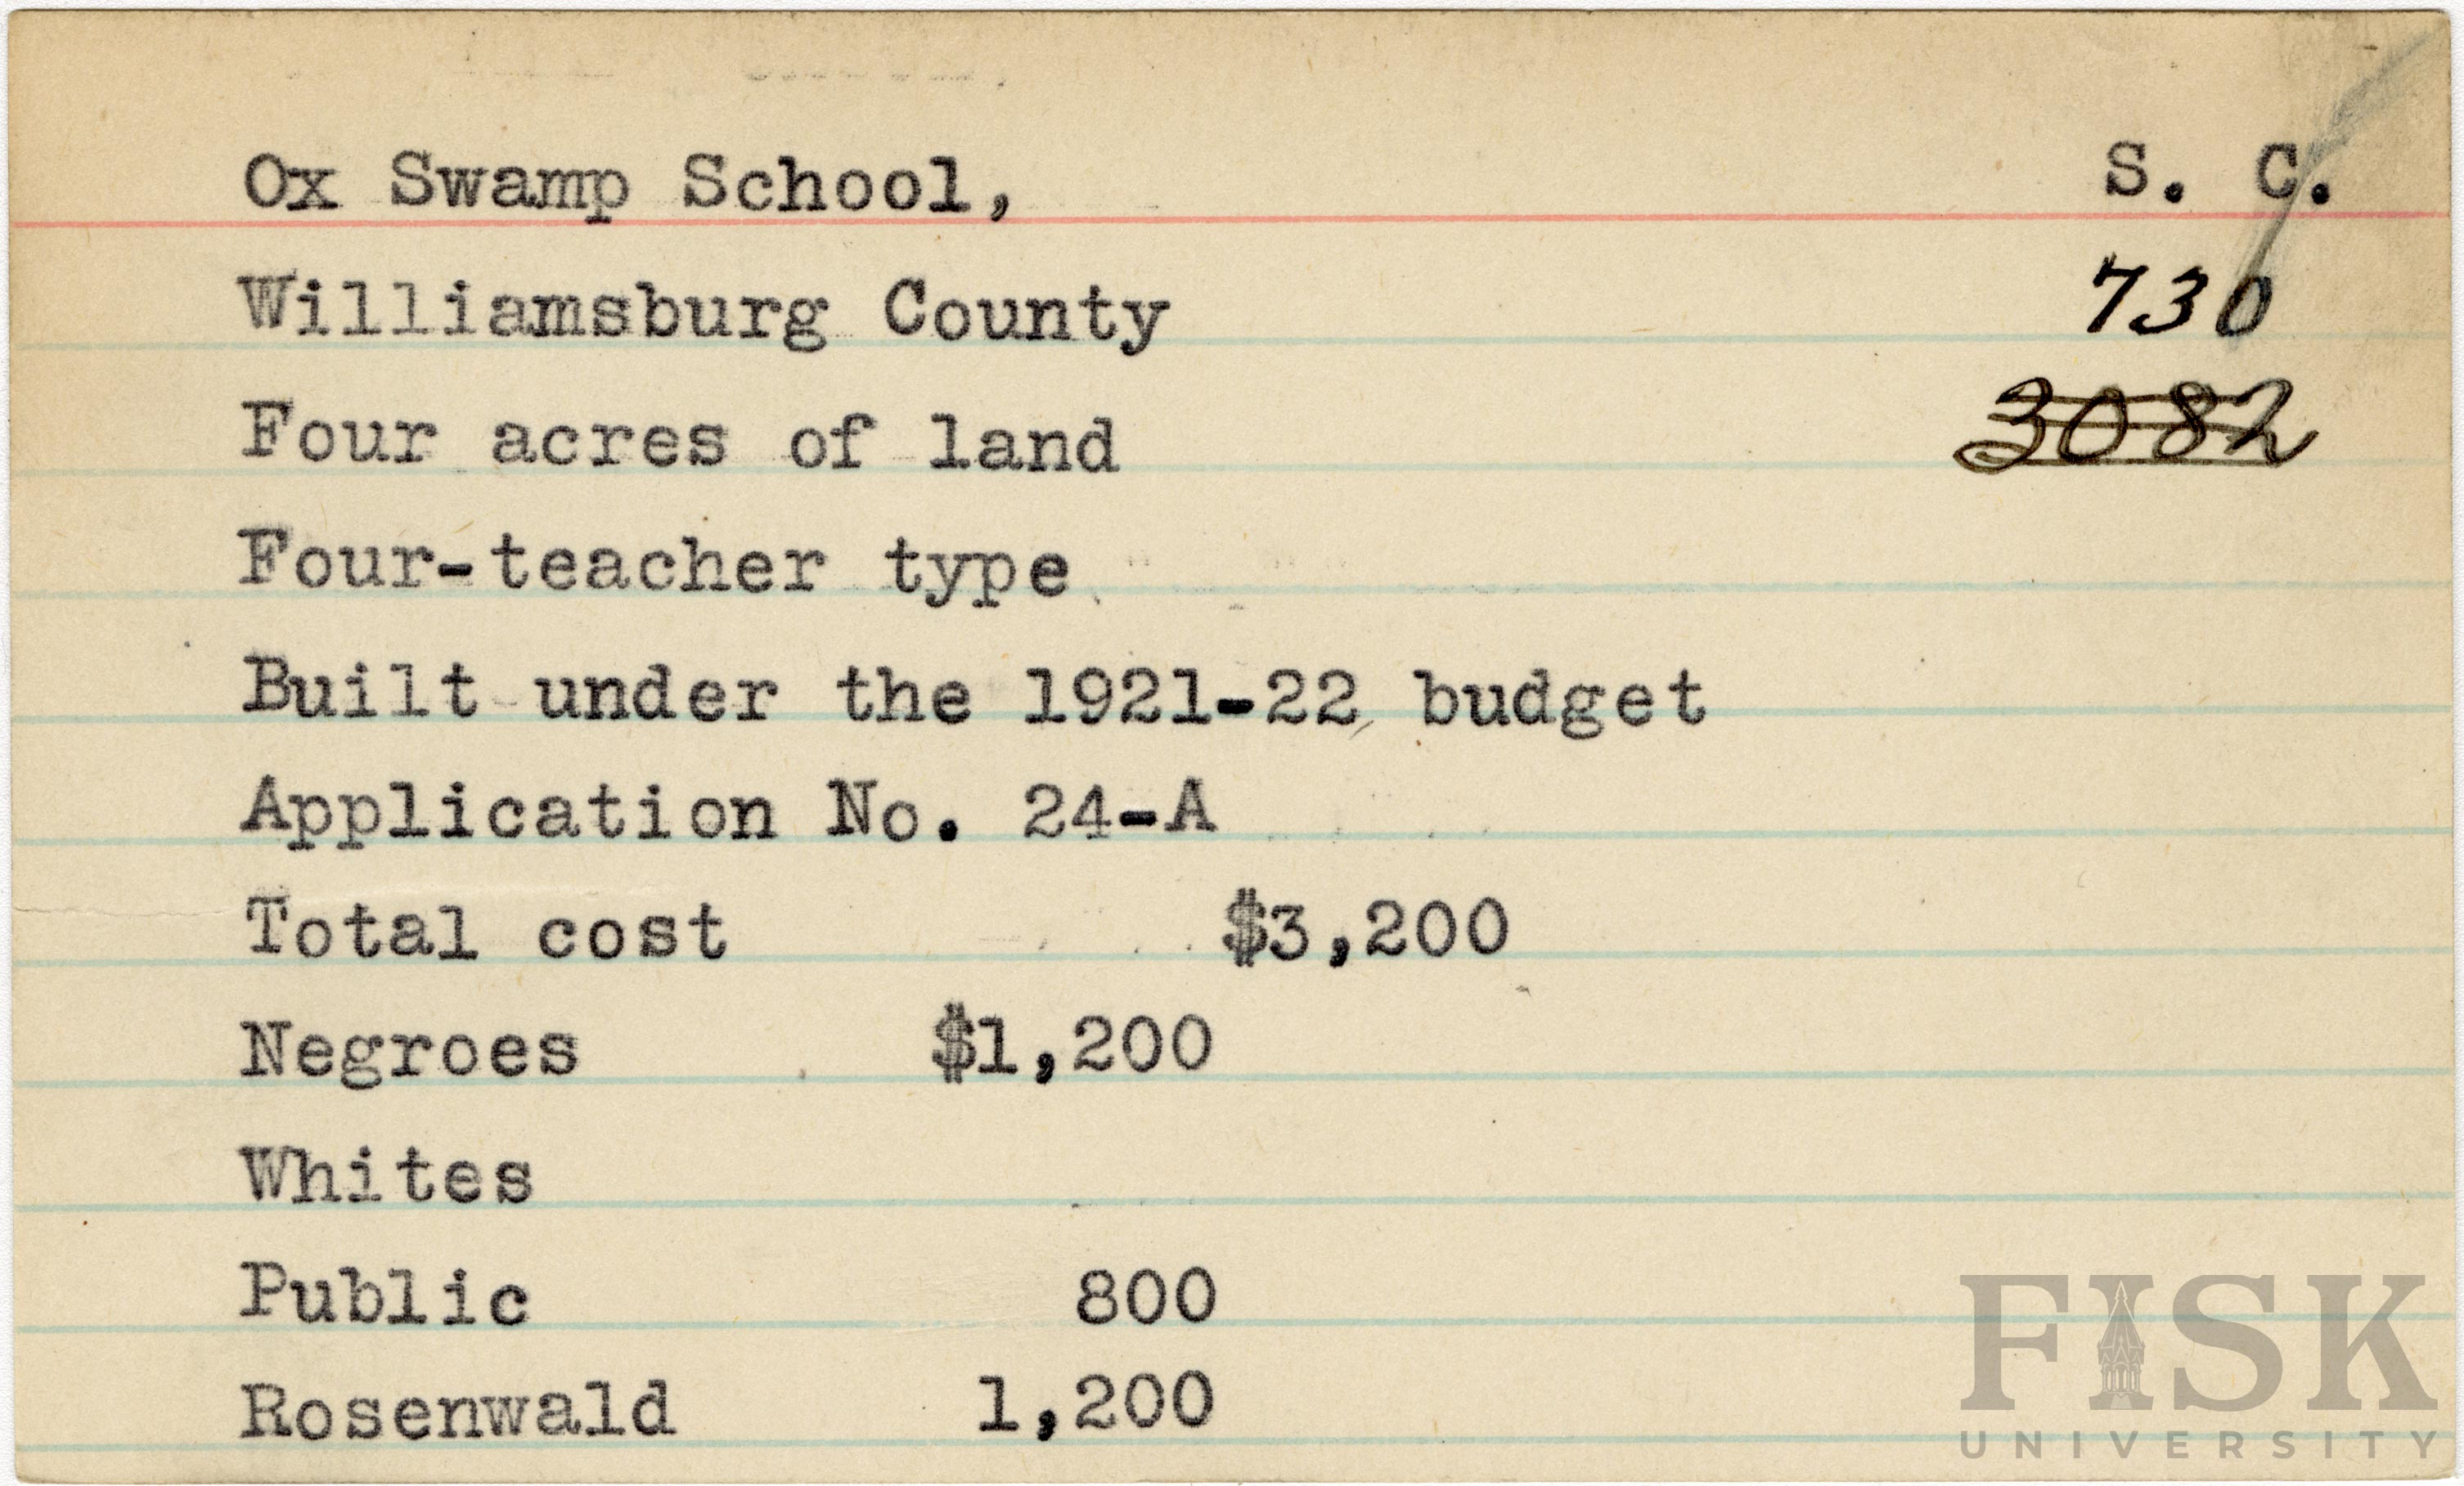 Ox Swamp School, S. C.
Williamsburg County 730
Four acres of land 3082
Four-teacher type
Built under the 1921-22 budget
Application No. 24-A
Total cost $3,200
Negroes $1,200
Whites
Public 800
Rosenwald 1,200
FISK
UNIVERSITY